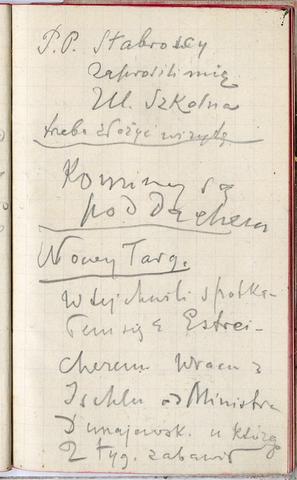 P.P. Stabroscy
zaprosili mię
Ul. Szkolna
trzeba złożyć wizytę
Kominy są
pod Dachem
Nowey Targ.
W tej chwili spotka-
łem się z Estrei-
cherem wraca z
Ischlu od Ministra
Dunajewsk. u którego
2 tyg. zabawił